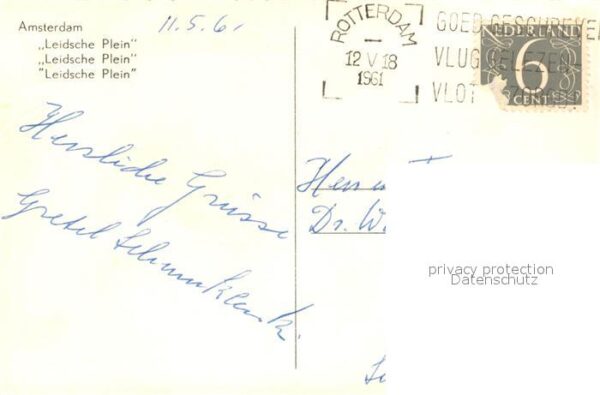 Amsterdam
„Leidsche Plein"
„Leidsche Plein"
"Leidsche Plein"
11.5.61
ROTTERDAM
12 V 18
1961
GOED GESCHREVEN
VLUG GELEZEN-
VLOT
NEDERLAND
6
CENT
Herzliche Grüsse
Gretel
Herr
Dr. W.
privacy protection
Datenschutz